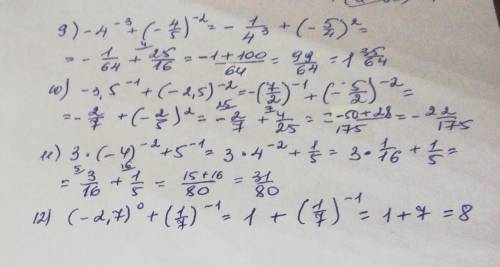 9) -4⁻³ + (-4/5)⁻² = -1/4³ + (-5/4)² =
= -1/64 + 25/16 = (-1+100)/64 = 99/64 = 1 35/64
10) -3,5⁻¹ + (-2,5)⁻² = -(7/2)⁻¹ + (-5/2)⁻² =
= -2/7 + (-2/5)² = -2/7 + 4/25 = (-50+28)/175 = -22/175
11) 3·(-4)⁻² + 5⁻¹ = 3·4⁻² + 1/5 = 3·1/16 + 1/5 =
= 3/16 + 1/5 = (15+16)/80 = 31/80
12) (-2,7)⁰ + (1/7)⁻¹ = 1 + (1/7)⁻¹ = 1+7 = 8